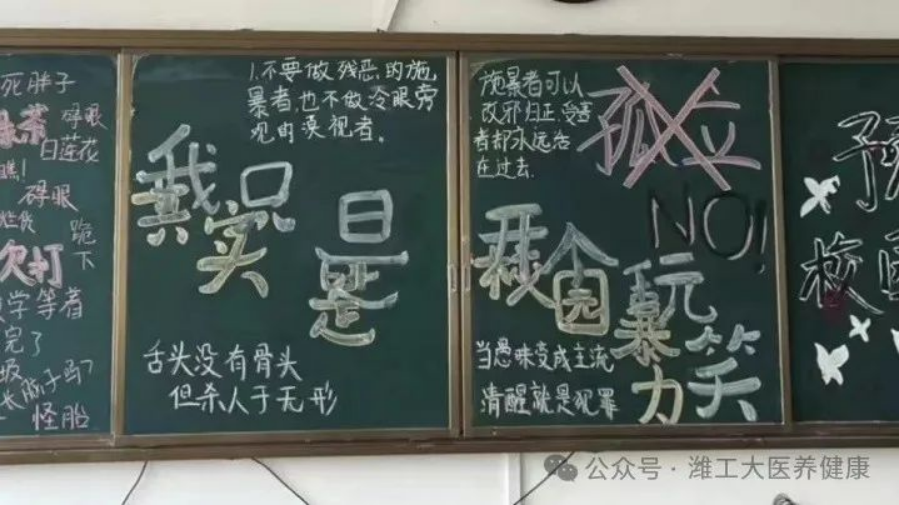 死胖子
绿茶
碍眼
白莲花
碍眼
跪下
欠打
学等着
完了
长脑子吗?
怪胎
1.不要做残恶的施
暴者,也不做冷眼旁
观的漠视者。
我只
实
是
舌头没有骨头
但杀人于无形
施暴者可以
改邪归正,受害
者都永远活
在过去.
孤立
NO!
园
玩笑
暴力
当愚昧变成主流
清醒就是犯罪
校
公众号·潍工大医养健康